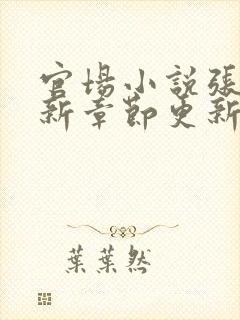 官場小說張
新章節更新
葉葉然